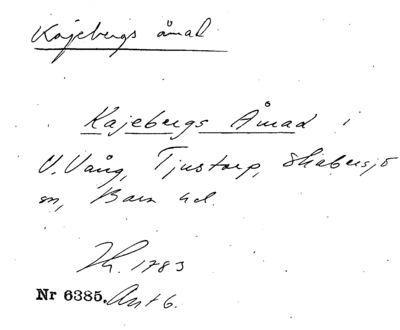 Kajebergs åmad
Kajebergs Åmad i
V. Vång, Tjustorp, Skabersjö
sn, Bara hd.
Th. 1783
Nr 6385. Ant 6.